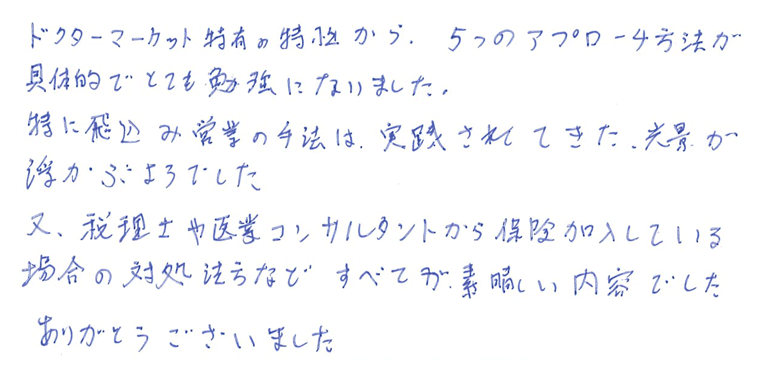 ドクターマーケット特有の特徴から、5つのアプローチ方法が
具体的でとても勉強になりました。
特に飛込み営業の手法は、実践されてきた、光景が
浮かぶようでした
又、税理士や医業コンサルタントから保険加入している
場合の対処法方など すべてが、素晴しい内容でした
ありがとうございました